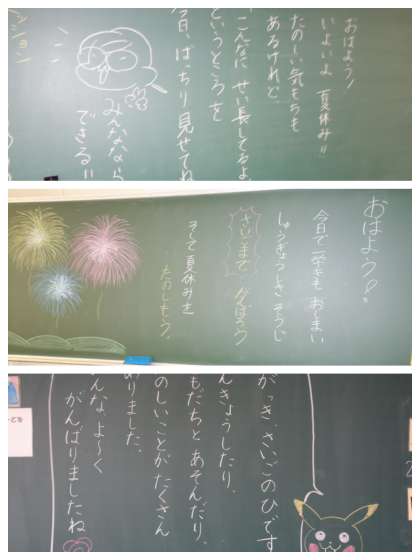 おはよう!
いよいよ 夏休み!!
たのしい気もちも
あるけれど、
こんなに せい長してるよ
というところを
今日、ばっちり見せてね
みんななら
できる!!
おはよう!
今日で一学きも おしまい
しゅうぎょうしき そうじ
さいごまで がんばろう
そして夏休みを
たのしもう。
がっき、さいごのひです
んきょうしたり、
もだちと あそんだり、
のしいことが たくさん
ありました。
んな、よ〜く
がんばりましたね